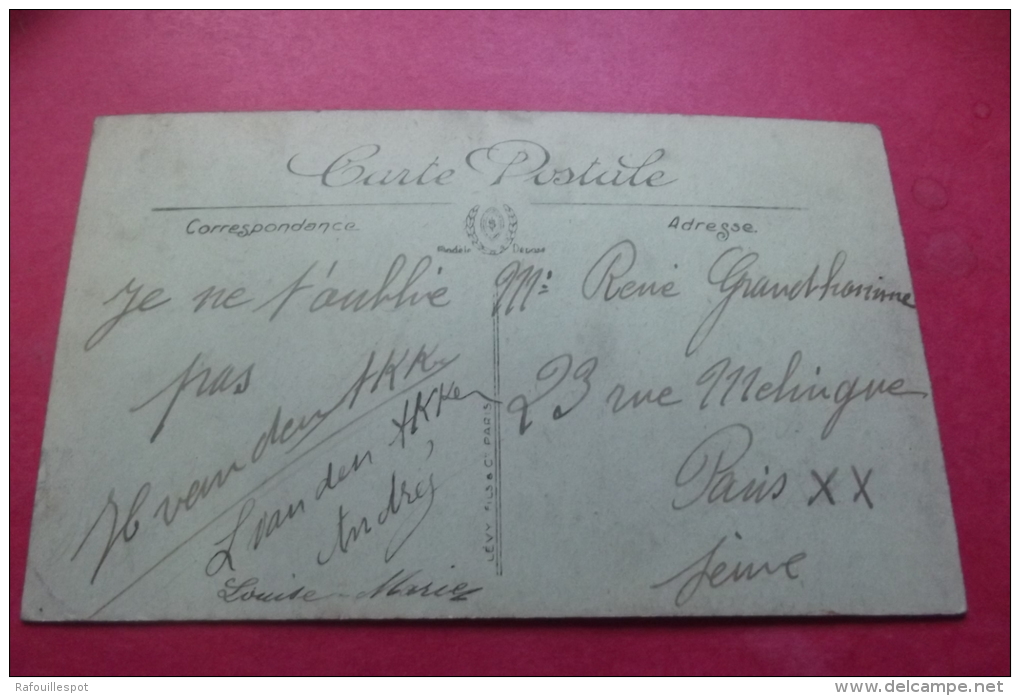 Carte Postale
Correspondance
Adresse
Je ne t'oublie
pas
H van den Akker
L van den Akker
André
Louise-Marie
Mr René Grandhomme
23 rue Melingue
Paris XX
Seine
LÉVY FILS & Cie PARIS
Rafouillespot
delcampe.net